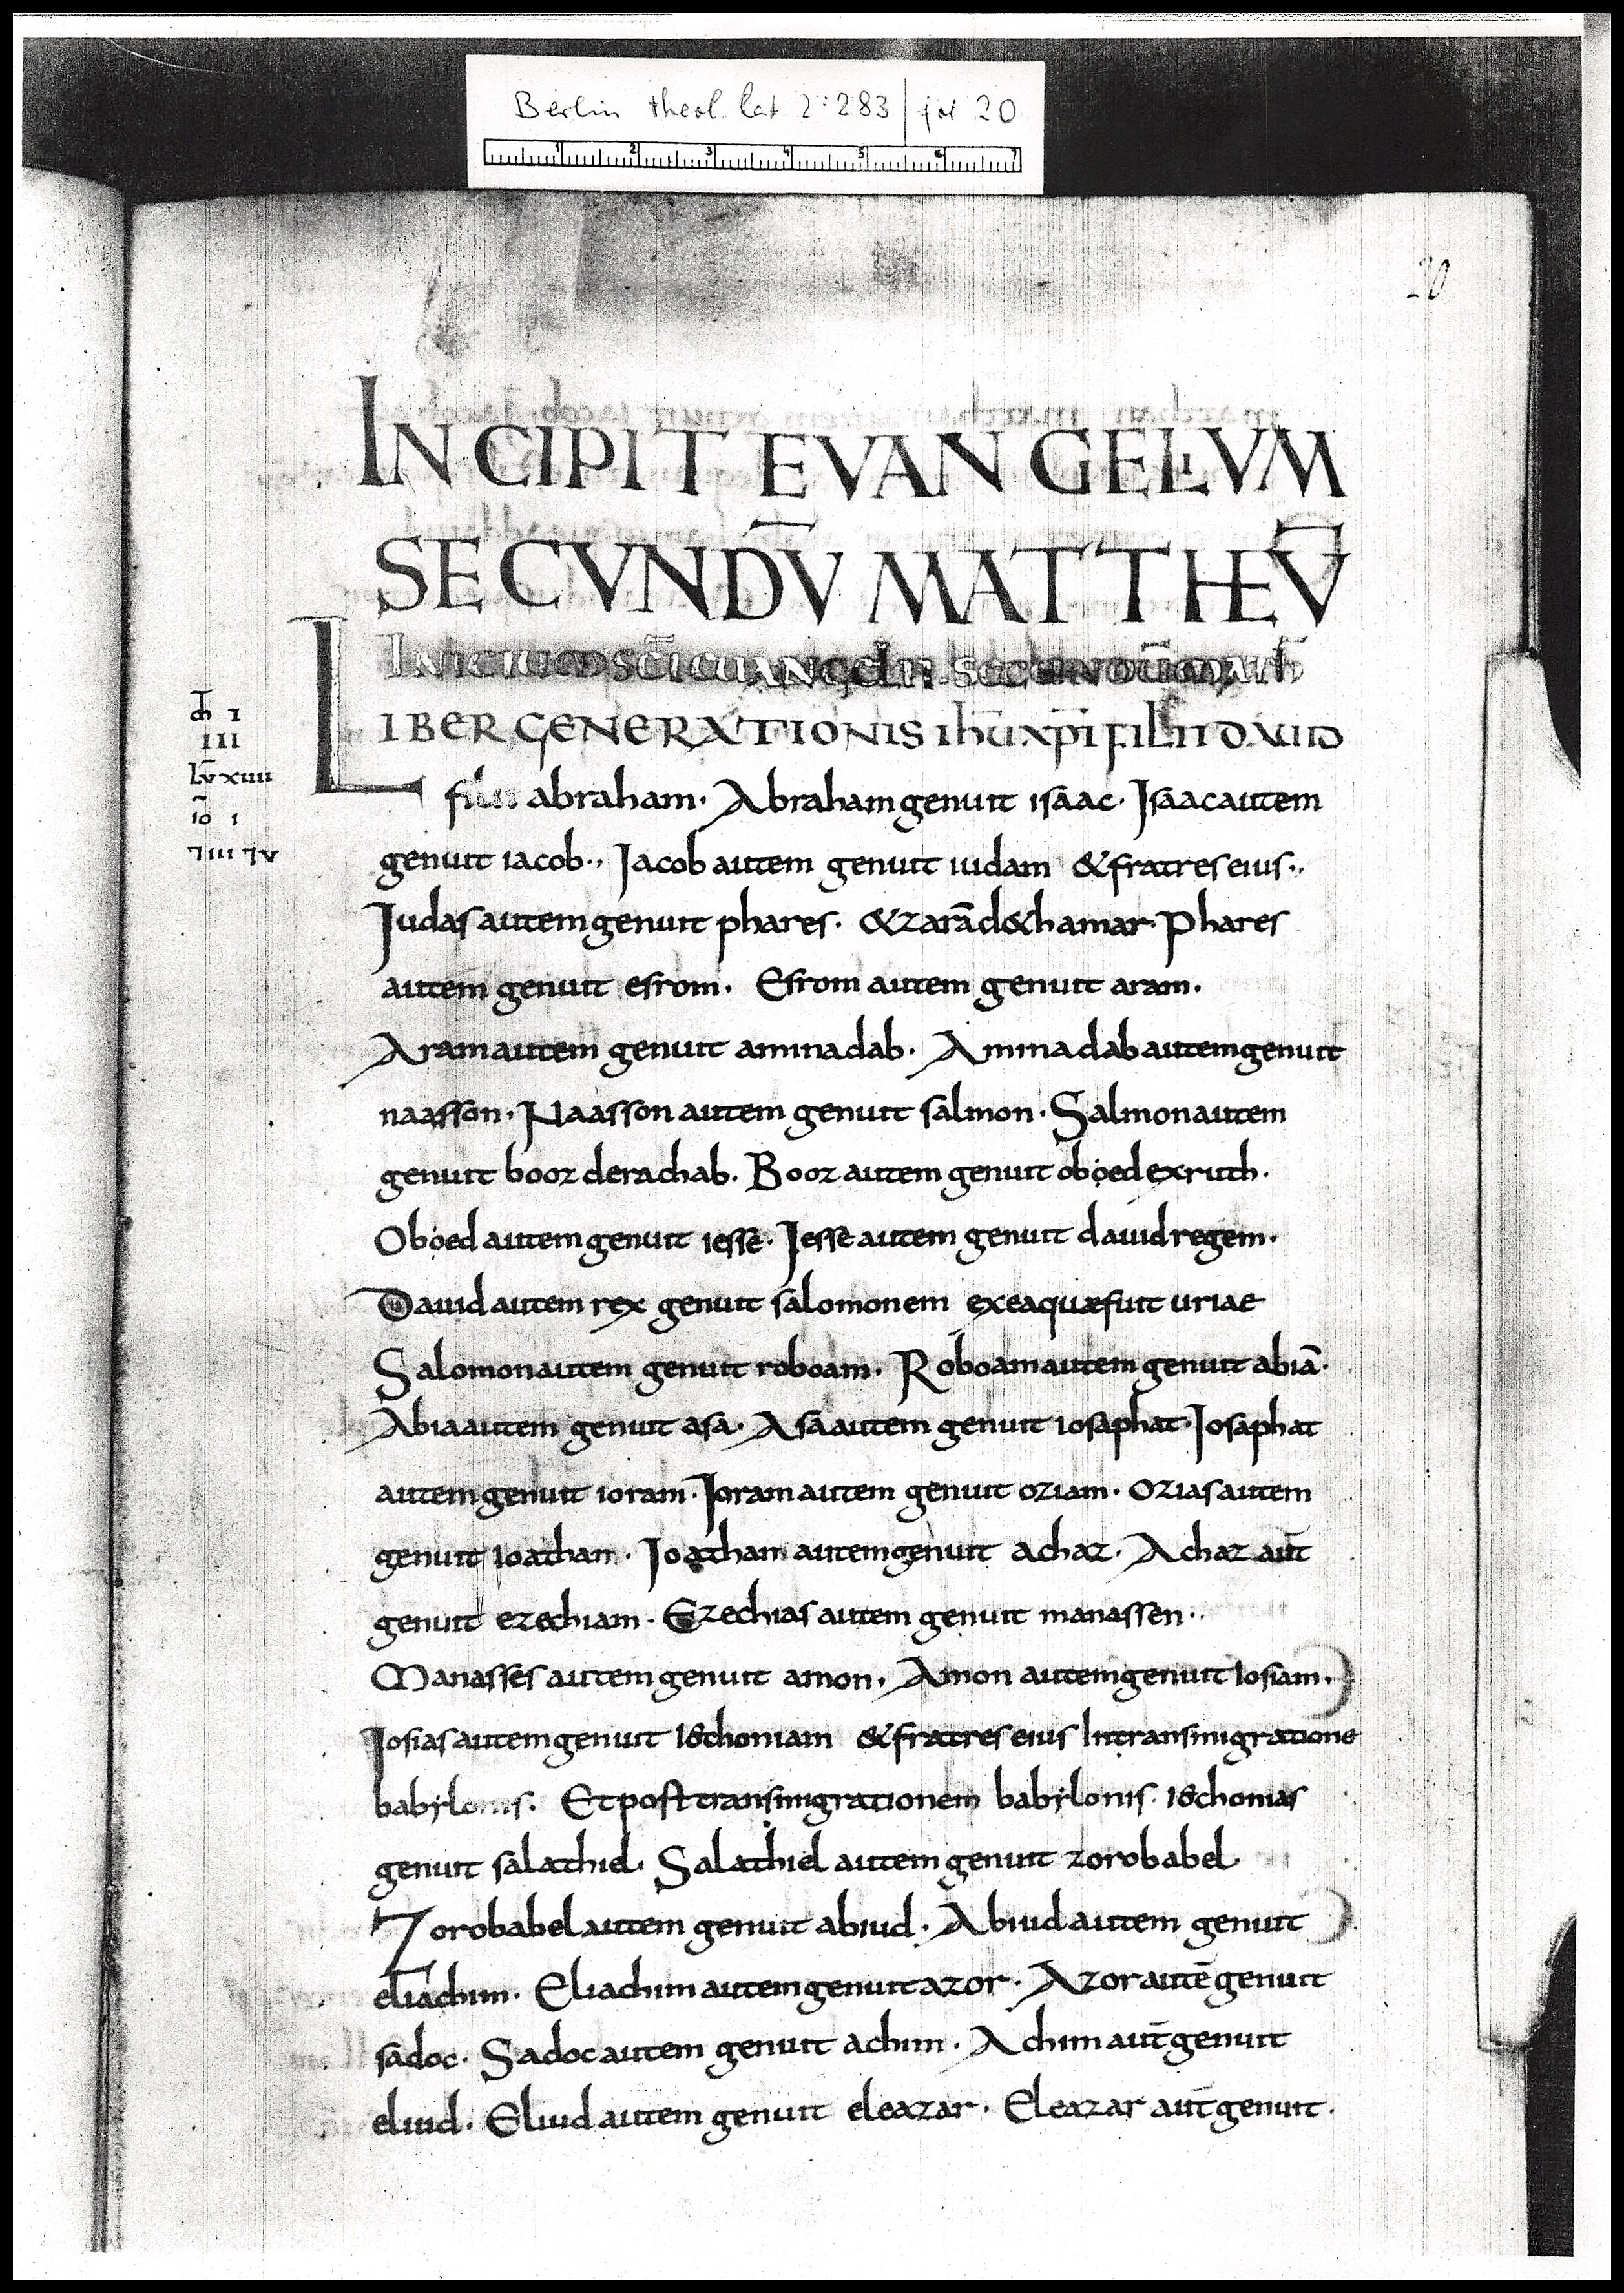 Berlin theol. lat 2° 283 fol 20
1 2 3 4 5 6 7
20
INCIPIT EVANGELIVM
SECVNDV̄ MATTHEV̄
INICIUM SC̄I EUANGELII SECUNDŪ MATH̄
LIBER GENERATIONIS IHŪ XPĪ FILII DAUID
filii abraham. Abraham genuit isaac. Isaac autem
genuit iacob., Iacob autem genuit iudam & fratres eius.,
Iudas autem genuit phares. & zarā d& hamar. Phares
autem genuit esrom. Esrom autem genuit aram.
Aram autem genuit aminadab. Aminadab autem genuit
naasson. Naasson autem genuit salmon. Salmon autem
genuit booz de rachab. Booz autem genuit oboed ex ruth.
Oboed autem genuit iesse. Iesse autem genuit dauid regem.
Dauid autem rex genuit salomonem ex ea quæ fuit uriae
Salomon autem genuit roboam. Roboam autem genuit abiā.
Abia autem genuit asa. Asa autem genuit iosaphat. Iosaphat
autem genuit ioram. Ioram autem genuit oziam. Ozias autem
genuit ioatham. Ioatham autem genuit achaz. Achaz aut̄
genuit ezechiam. Ezechias autem genuit manassen.
Manasses autem genuit amon. Amon autem genuit Iosiam.
Iosias autem genuit I&choniam & fratres eius In transmigratione
babylonis. Et post transmigrationem babylonis. I&chonias
genuit salathiel. Salathiel autem genuit zorobabel
Zorobabel autem genuit abiud. Abiud autem genuit
eliachim. Eliachim autem genuit azor. Azor autē genuit
sadoc. Sadoc autem genuit achim. Achim aut̄ genuit
eliud. Eliud autem genuit eleazar. Eleazar aut̄ genuit.
I
III
LV̄ XIIII
IO̅ I
⁊ III ⁊ V